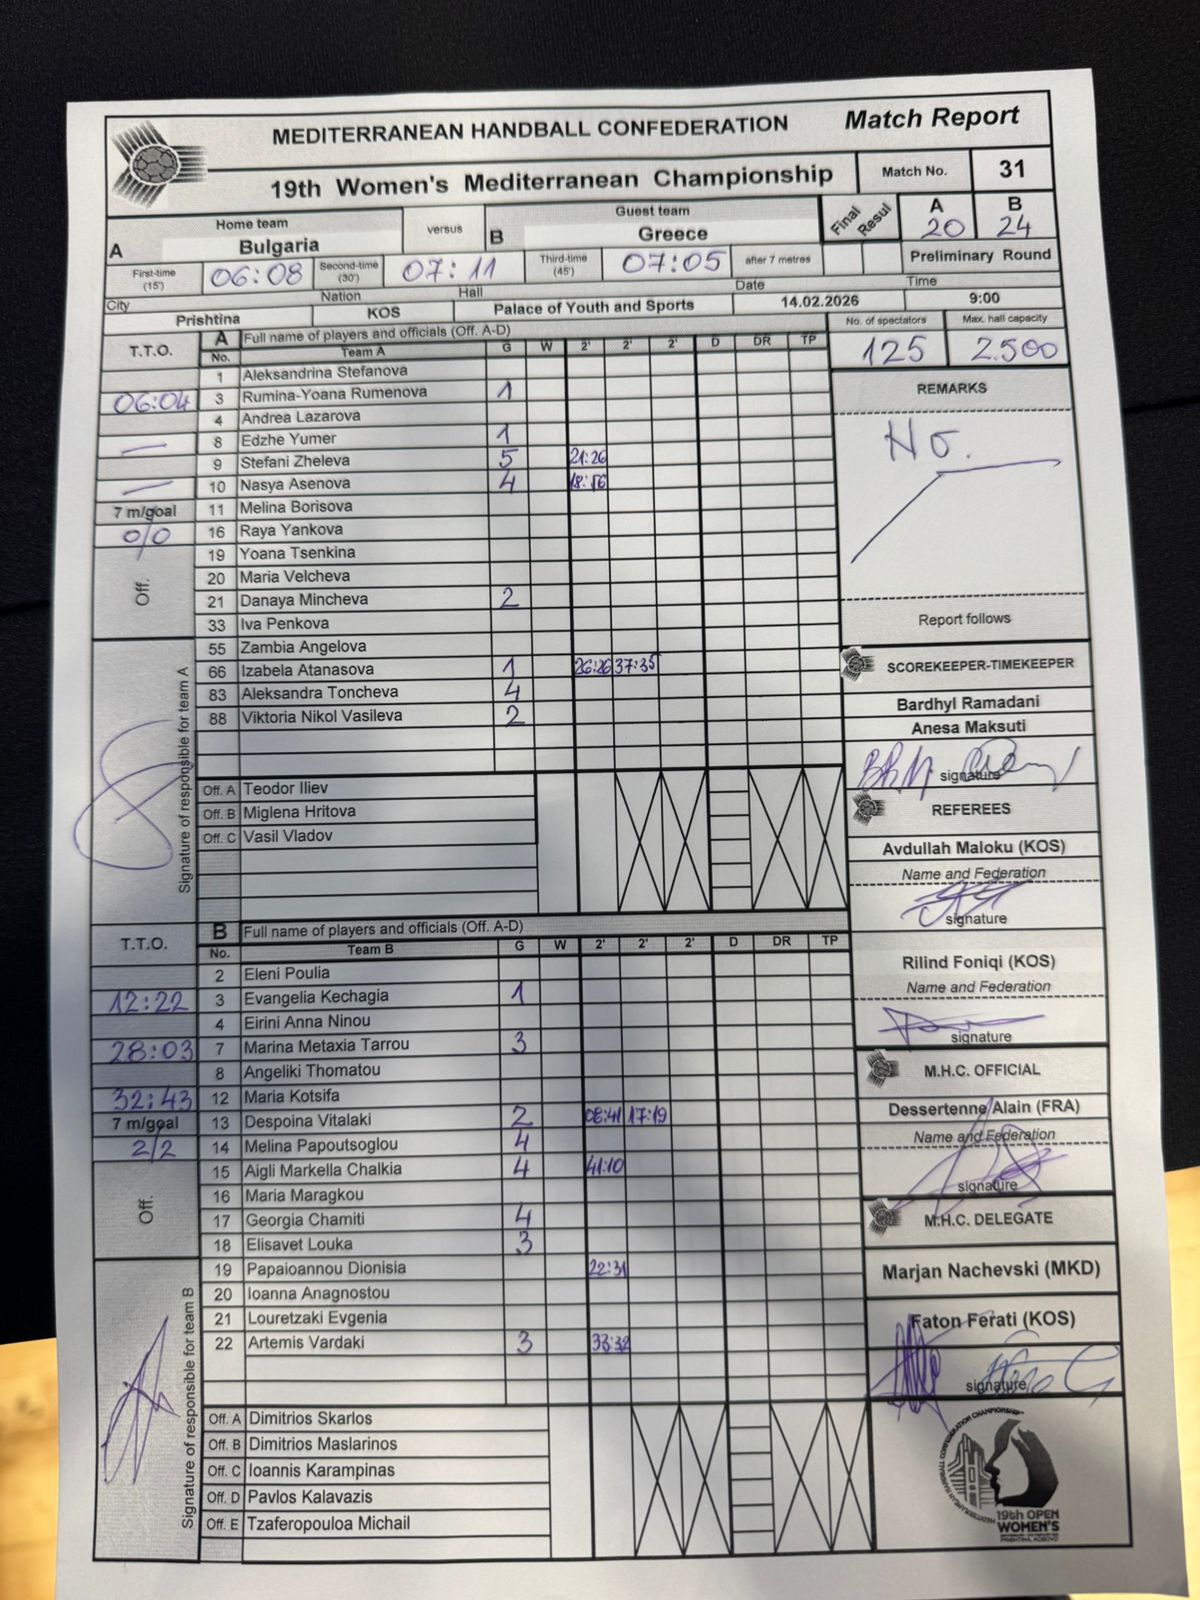 MEDITERRANEAN HANDBALL CONFEDERATION Match Report
19th Women's Mediterranean Championship Match No. 31
Home team versus Guest team Final Resul A B
A Bulgaria B Greece 20 24
First-time (15') 06:08 Second-time (30') 07:11 Third-time (45') 07:05 after 7 metres Preliminary Round
City Nation Hall Date Time
Prishtina KOS Palace of Youth and Sports 14.02.2026 9:00
No. of spectators Max. hall capacity
125 2.500
T.T.O. A Full name of players and officials (Off. A-D)
No. Team A G W 2' 2' 2' D DR TP
1 Aleksandrina Stefanova
06:04 3 Rumina-Yoana Rumenova 1
4 Andrea Lazarova
— 8 Edzhe Yumer 1
9 Stefani Zheleva 5 21:26
— 10 Nasya Asenova 4 18:56
7 m/goal 11 Melina Borisova
0/0 16 Raya Yankova
19 Yoana Tsenkina
Off. 20 Maria Velcheva
21 Danaya Mincheva 2
33 Iva Penkova
55 Zambia Angelova
66 Izabela Atanasova 1 26:26 37:35
83 Aleksandra Toncheva 4
88 Viktoria Nikol Vasileva 2
Signature of responsible for team A
Off. A Teodor Iliev
Off. B Miglena Hritova
Off. C Vasil Vladov
T.T.O. B Full name of players and officials (Off. A-D)
No. Team B G W 2' 2' 2' D DR TP
2 Eleni Poulia
12:22 3 Evangelia Kechagia 1
4 Eirini Anna Ninou
28:03 7 Marina Metaxia Tarrou 3
8 Angeliki Thomatou
32:43 12 Maria Kotsifa
7 m/goal 13 Despoina Vitalaki 2 08:41 17:19
2/2 14 Melina Papoutsoglou 4
15 Aigli Markella Chalkia 4 41:10
16 Maria Maragkou
Off. 17 Georgia Chamiti 4
18 Elisavet Louka 3
19 Papaioannou Dionisia 22:31
20 Ioanna Anagnostou
21 Louretzaki Evgenia
22 Artemis Vardaki 3 33:32
Signature of responsible for team B
Off. A Dimitrios Skarlos
Off. B Dimitrios Maslarinos
Off. C Ioannis Karampinas
Off. D Pavlos Kalavazis
Off. E Tzaferopouloa Michail
REMARKS
No.
Report follows
SCOREKEEPER-TIMEKEEPER
Bardhyl Ramadani
Anesa Maksuti
signature
REFEREES
Avdullah Maloku (KOS)
Name and Federation
signature
Rilind Foniqi (KOS)
Name and Federation
signature
M.H.C. OFFICIAL
Dessertenne Alain (FRA)
Name and Federation
signature
M.H.C. DELEGATE
Marjan Nachevski (MKD)
Faton Ferati (KOS)
signature
19th OPEN
WOMEN'S